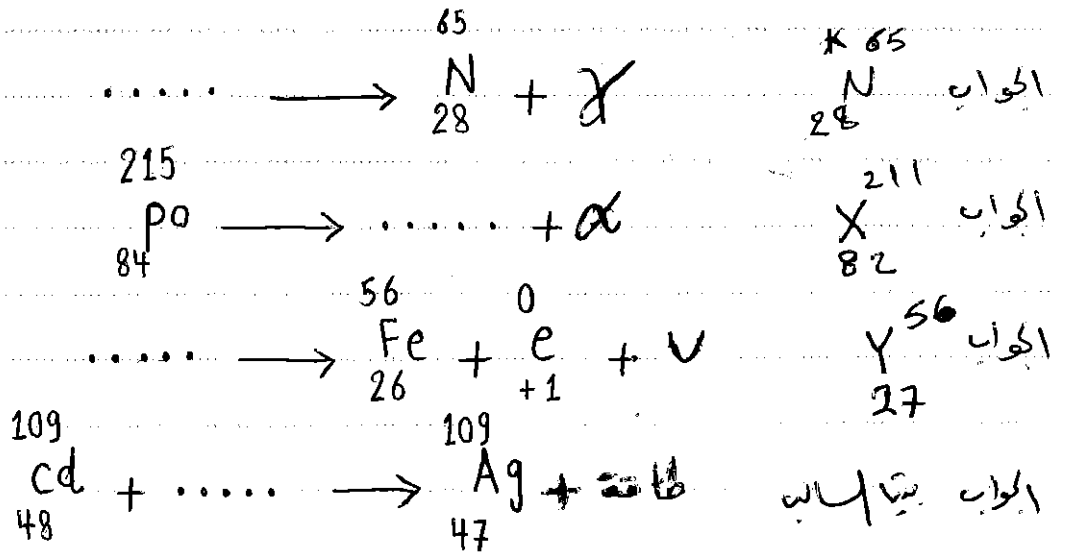 ..... → ⁶⁵₂₈N + γ الجواب ⁶⁵₂₈N*
²¹⁵₈₄Po → ..... + α الجواب ²¹¹₈₂X
..... → ⁵⁶₂₆Fe + ⁰₊₁e + ν الجواب ⁵⁶₂₇Y
¹⁰⁹₄₈Cd + ..... → ¹⁰⁹₄₇Ag + طاقة الجواب بيتا السالب